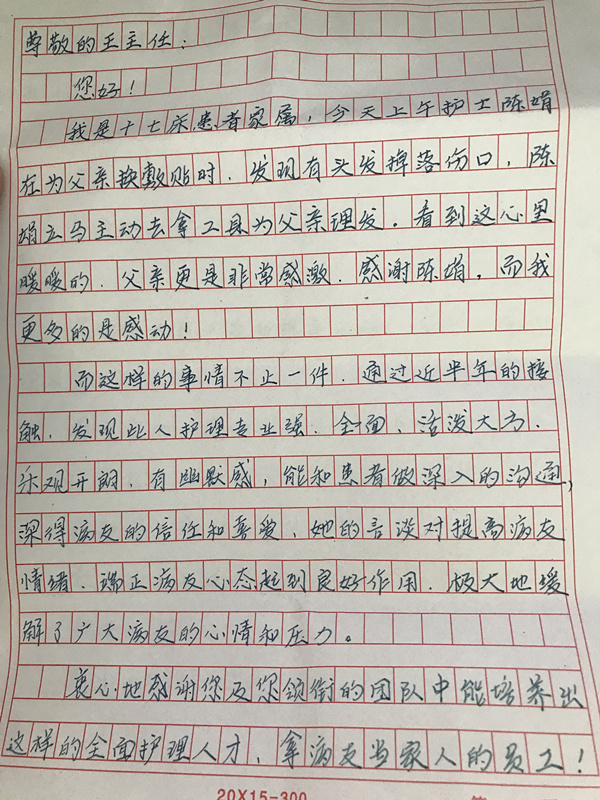 尊敬的王主任：
您好！
我是十七床患者家属，今天上午护士陈娟
在为父亲换敷贴时，发现有头发掉落伤口，陈
娟立马主动去拿工具为父亲理发。看到这心里
暖暖的．父亲更是非常感激．感谢陈娟，而我
更多的是感动！
而这样的事情不止一件．通过近半年的接
触．发现此人护理专业强．全面、活泼大方．
乐观开朗．有幽默感，能和患者做深入的沟通，
深得病友的信任和喜爱，她的言谈对提高病友
情绪．端正病友心态起到良好作用．极大地缓
解了广大病友的心情和压力。
衷心地感谢您及您领衔的团队中能培养出
这样的全面护理人才，拿病友当家人的员工！
20X15-300